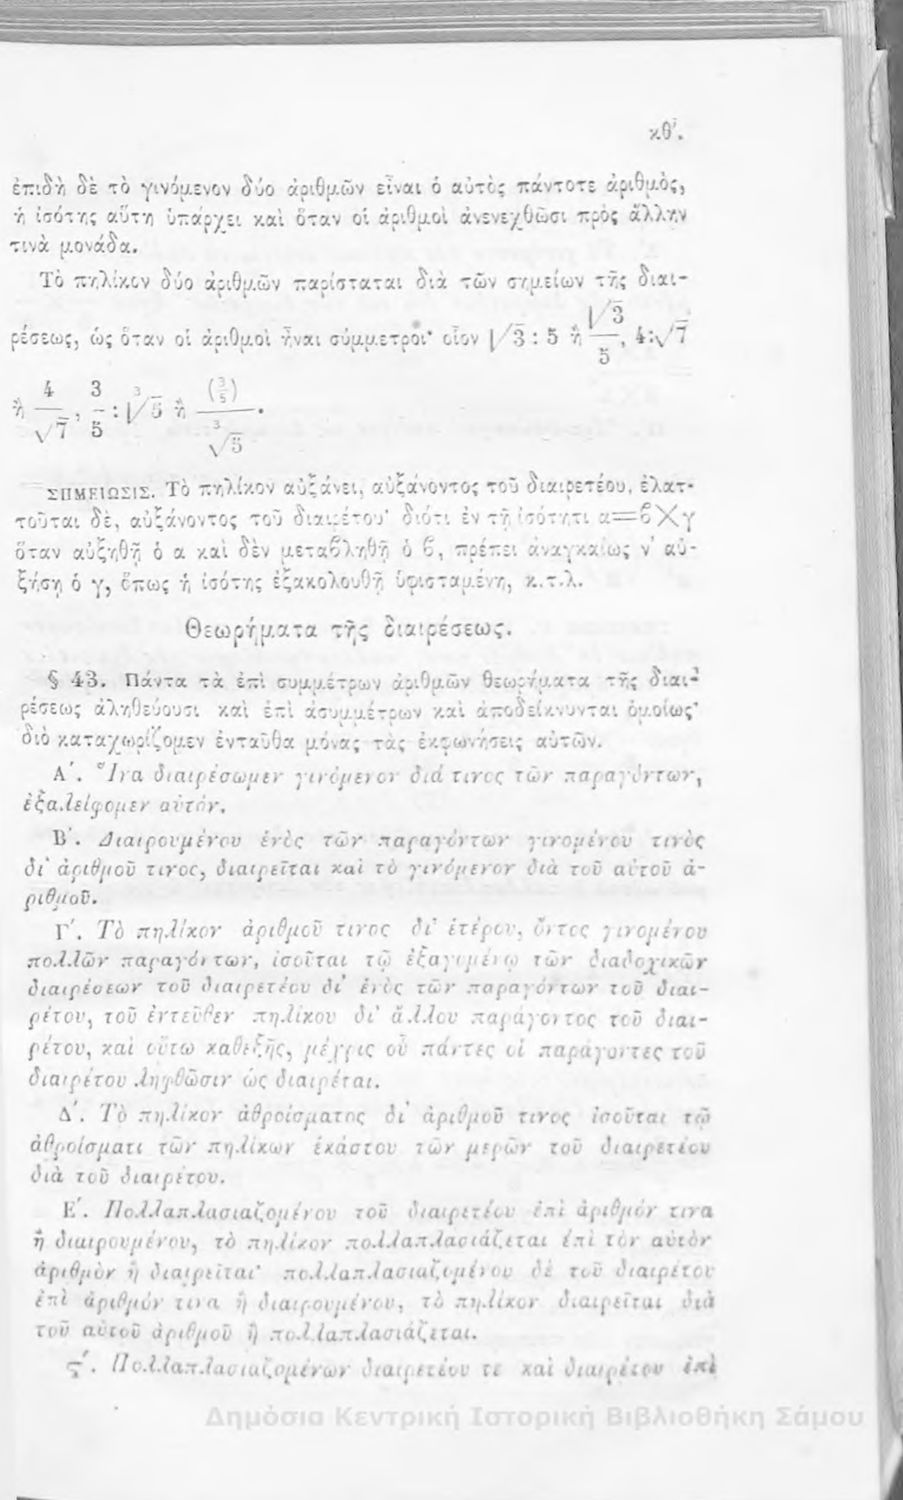 κθʹ.
ἐπιδὴ δὲ τὸ γινόμενον δύο ἀριθμῶν εἶναι ὁ αὐτὸς πάντοτε ἀριθμὸς,
ἡ ἰσότης αὕτη ὑπάρχει καὶ ὅταν οἱ ἀριθμοὶ ἀνενεχθῶσι πρὸς ἄλλην
τινὰ μονάδα.
Τὸ πηλίκον δύο ἀριθμῶν παρίσταται διὰ τῶν σημείων τῆς διαι-
ρέσεως, ὡς ὅταν οἱ ἀριθμοὶ ἦναι σύμμετροι· οἷον √3 : 5 ἢ √3/5, 4:√7
ἢ 4/√7, 3/5 : ∛5 ἢ (3/5)/∛5.
ΣΗΜΕΙΩΣΙΣ. Τὸ πηλίκον αὐξάνει, αὐξάνοντος τοῦ διαιρετέου, ἐλατ-
τοῦται δὲ, αὐξάνοντος τοῦ διαιρέτου· διότι ἐν τῇ ἰσότητι α=ϐ×γ
ὅταν αὐξηθῇ ὁ α καὶ δὲν μεταϐληθῇ ὁ ϐ, πρέπει ἀναγκαίως ν' αὐ-
ξήσῃ ὁ γ, ὅπως ἡ ἰσότης ἐξακολουθῇ ὑφισταμένη, κ.τ.λ.
Θεωρήματα τῆς διαιρέσεως.
§ 43. Πάντα τὰ ἐπὶ συμμέτρων ἀριθμῶν θεωρήματα τῆς διαι-
ρέσεως ἀληθεύουσι καὶ ἐπὶ ἀσυμμέτρων καὶ ἀποδείκνυνται ὁμοίως·
διὸ καταχωρίζομεν ἐνταῦθα μόνας τὰς ἐκφωνήσεις αὐτῶν.
Αʹ. Ἵνα διαιρέσωμεν γινόμενον διά τινος τῶν παραγόντων,
ἐξαλείφομεν αὐτόν.
Βʹ. Διαιρουμένου ἑνὸς τῶν παραγόντων γινομένου τινὸς
δι' ἀριθμοῦ τινος, διαιρεῖται καὶ τὸ γινόμενον διὰ τοῦ αὐτοῦ ἀ-
ριθμοῦ.
Γʹ. Τὸ πηλίκον ἀριθμοῦ τινος δι' ἑτέρου, ὄντος γινομένου
πολλῶν παραγόντων, ἰσοῦται τῷ ἐξαγομένῳ τῶν διαδοχικῶν
διαιρέσεων τοῦ διαιρετέου δι' ἑνὸς τῶν παραγόντων τοῦ διαι-
ρέτου, τοῦ ἐντεῦθεν πηλίκου δι' ἄλλου παράγοντος τοῦ διαι-
ρέτου, καὶ οὕτω καθεξῆς, μέχρις οὗ πάντες οἱ παράγοντες τοῦ
διαιρέτου ληφθῶσιν ὡς διαιρέται.
Δʹ. Τὸ πηλίκον ἀθροίσματος δι' ἀριθμοῦ τινος ἰσοῦται τῷ
ἀθροίσματι τῶν πηλίκων ἑκάστου τῶν μερῶν τοῦ διαιρετέου
διὰ τοῦ διαιρέτου.
Εʹ. Πολλαπλασιαζομένου τοῦ διαιρετέου ἐπὶ ἀριθμόν τινα
ἢ διαιρουμένου, τὸ πηλίκον πολλαπλασιάζεται ἐπὶ τὸν αὐτὸν
ἀριθμὸν ἢ διαιρεῖται· πολλαπλασιαζομένου δὲ τοῦ διαιρέτου
ἐπὶ ἀριθμόν τινα ἢ διαιρουμένου, τὸ πηλίκον διαιρεῖται διὰ
τοῦ αὐτοῦ ἀριθμοῦ ἢ πολλαπλασιάζεται.
ϛʹ. Πολλαπλασιαζομένων διαιρετέου τε καὶ διαιρέτου ἐπὶ
Δημόσια Κεντρική Ιστορική Βιβλιοθήκη Σάμου